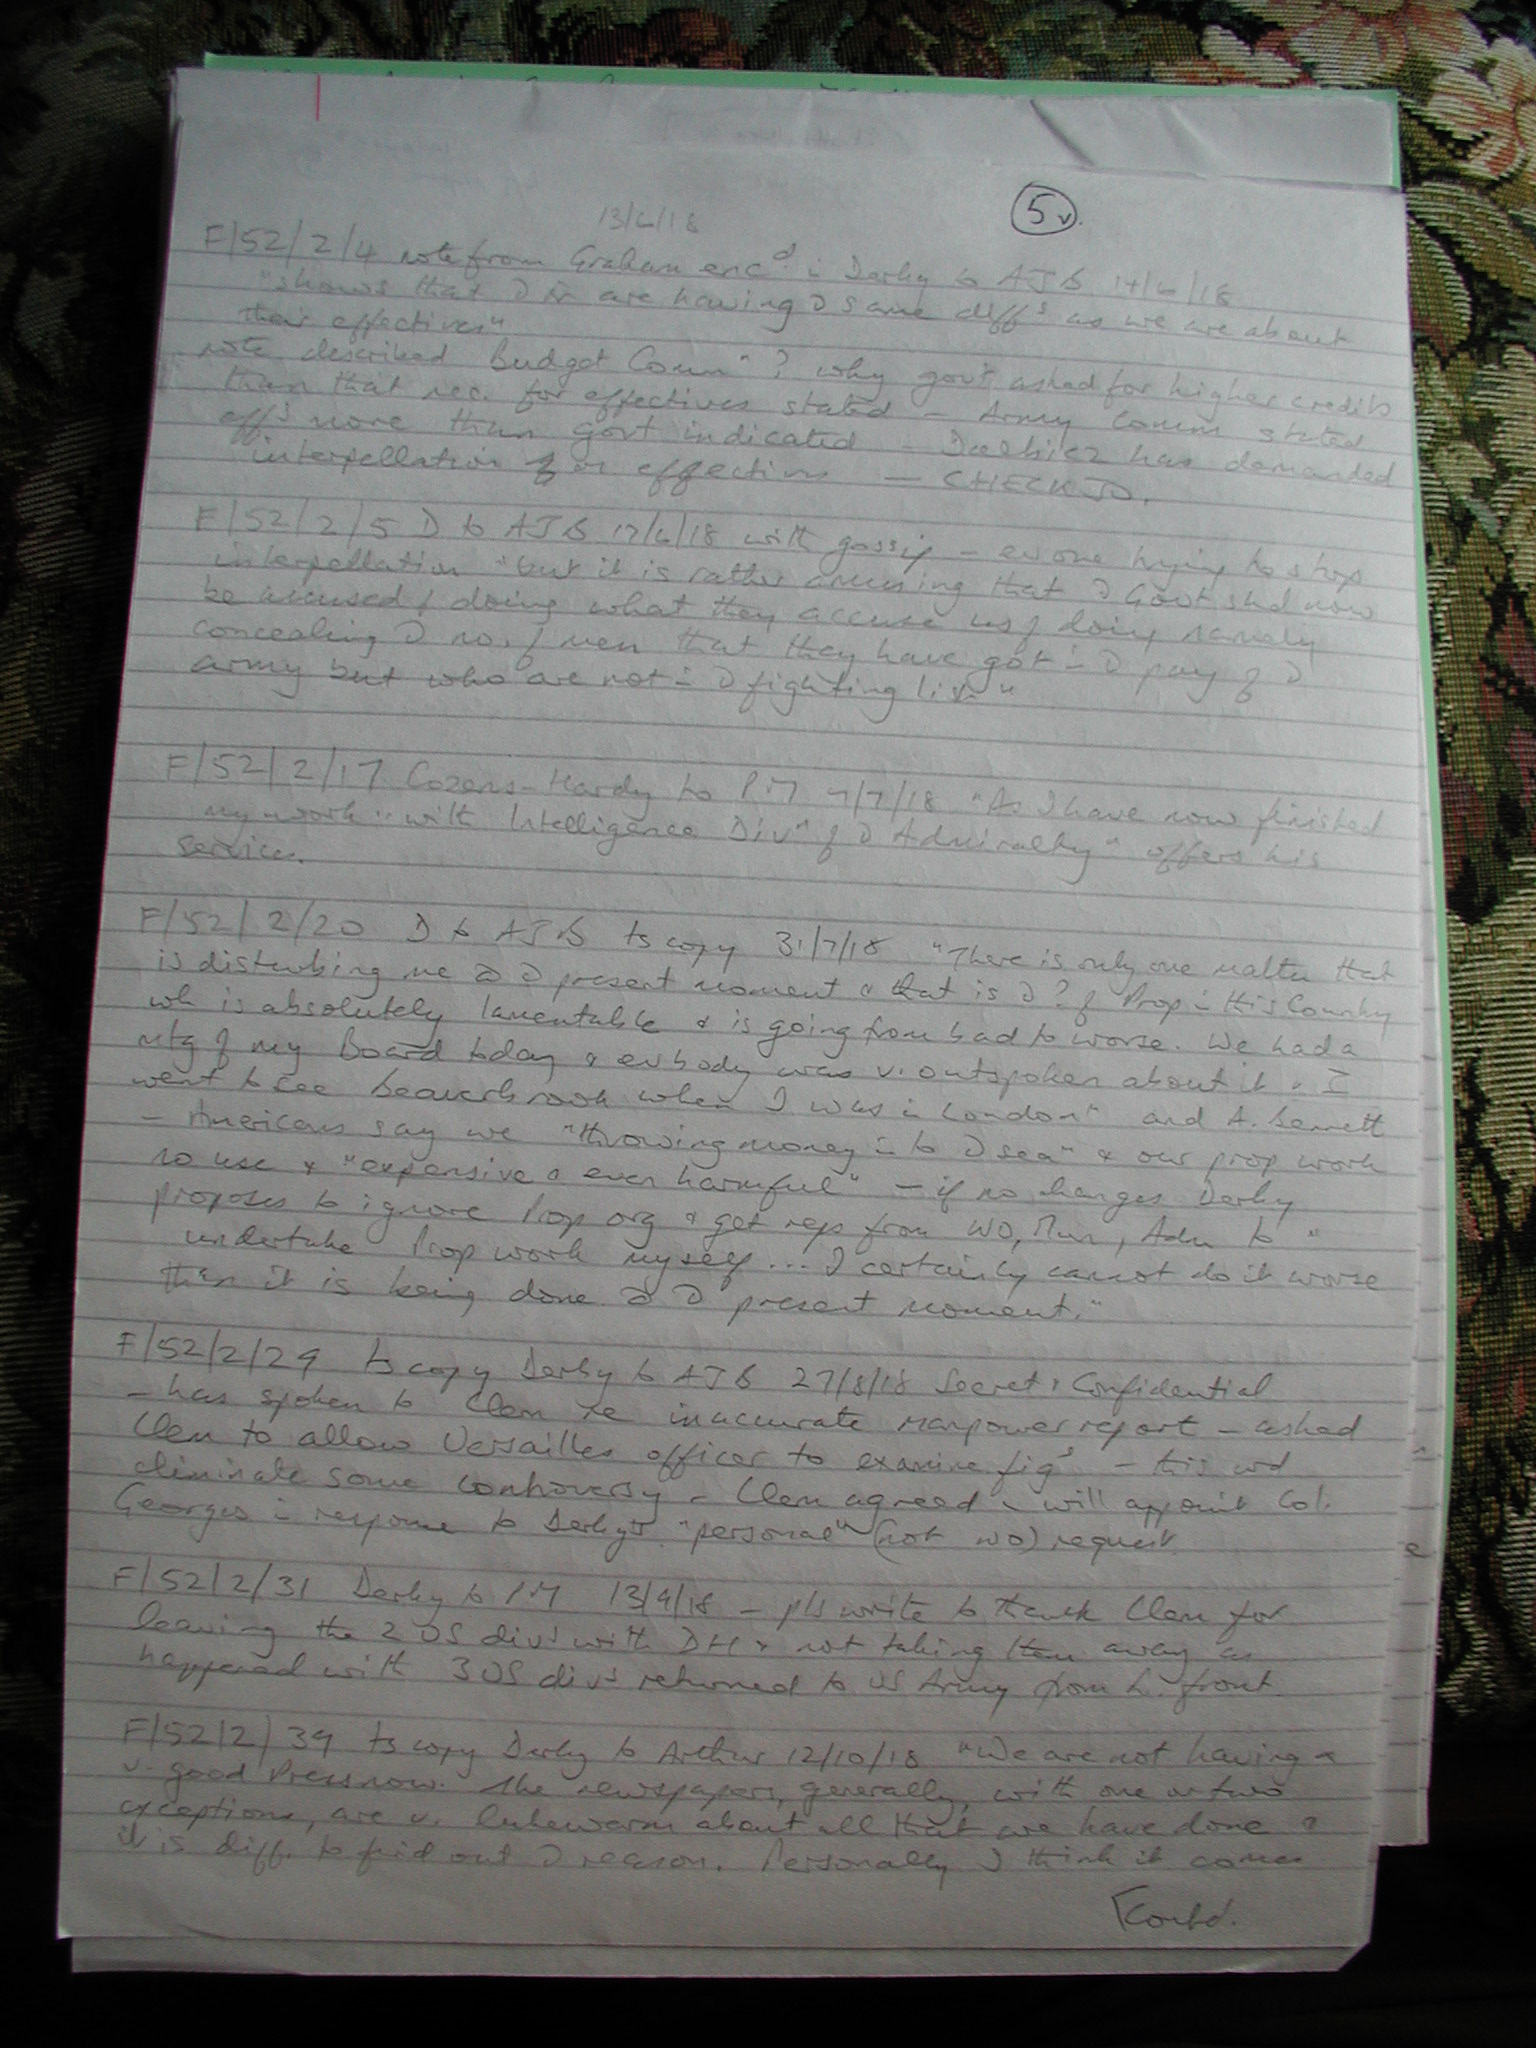 5v.
13/4/18
F/52/2/4 note from Graham encd. in Derby to AJB 14/4/18
"shows that are having same diffs as we are about
their effectives"
note described Budget Comn why govt asked for higher credits
than that nec. for effectives stated – Army Comm stated
effs more than govt indicated – has demanded
interpellation on effectives — CHECK JO.
F/52/2/5 D to AJB 17/4/18 with gossip – evone trying to stop
interpellation "but it is rather amusing that Govt shd now
be accused of doing what they accuse us of doing namely
concealing no. of men that they have got pay of
army but who are not fighting line"
F/52/2/17 Cozens-Hardy to PM 7/7/18 "As I have now finished
my work .. with Intelligence Divn of Admiralty" offers his
services.
F/52/2/20 D to AJB ts copy 31/7/18 "There is only one matter that
is disturbing me present moment & that is ? of Prop this Country
wh is absolutely lamentable & is going from bad to worse. We had a
mtg of my Board today & evbody was v. outspoken about it & I
went to see Beaverbrook when I was in London" and A. Bennett
– Americans say we "throwing money to sea" & our prop work
no use & "expensive & even harmful" – if no changes Derby
proposes to ignore Prop org & get reps from WO, Mun, Adm to "
undertake Prop work myself ... I certainly cannot do it worse
than it is being done present moment."
F/52/2/29 ts copy Derby to AJB 27/8/18 Secret & Confidential
– has spoken to Clem re inaccurate manpower report – asked
Clem to allow Versailles officer to examine figs – this wd
eliminate some controversy – Clem agreed – will appoint Col.
Georges in response to Derby's "personal" (not WO) request
F/52/2/31 Derby to PM 13/9/18 – pls write to thank Clem for
leaving the 2 US divs with DH & not taking them away as
happened with 3 US divs returned to US Army from L. front.
F/52/2/39 ts copy Derby to Arthur 12/10/18 "We are not having a
v. good Press now. The newspapers, generally, with one or two
exceptions, are v. lukewarm about all that we have done &
it is diff. to find out reason. Personally I think it comes
[Contd.